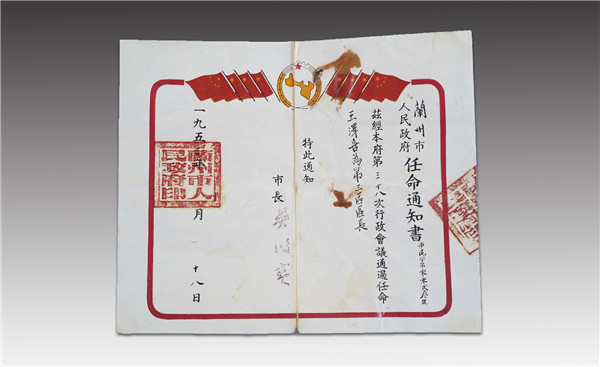 蘭州市
人民政府
任命通知書
茲經本府第三十八次行政會議通過任命
王澤喜為第三區區長
特此通知
市長 吳鴻賓
一九五 年 月 十八日
蘭州市人民政府印